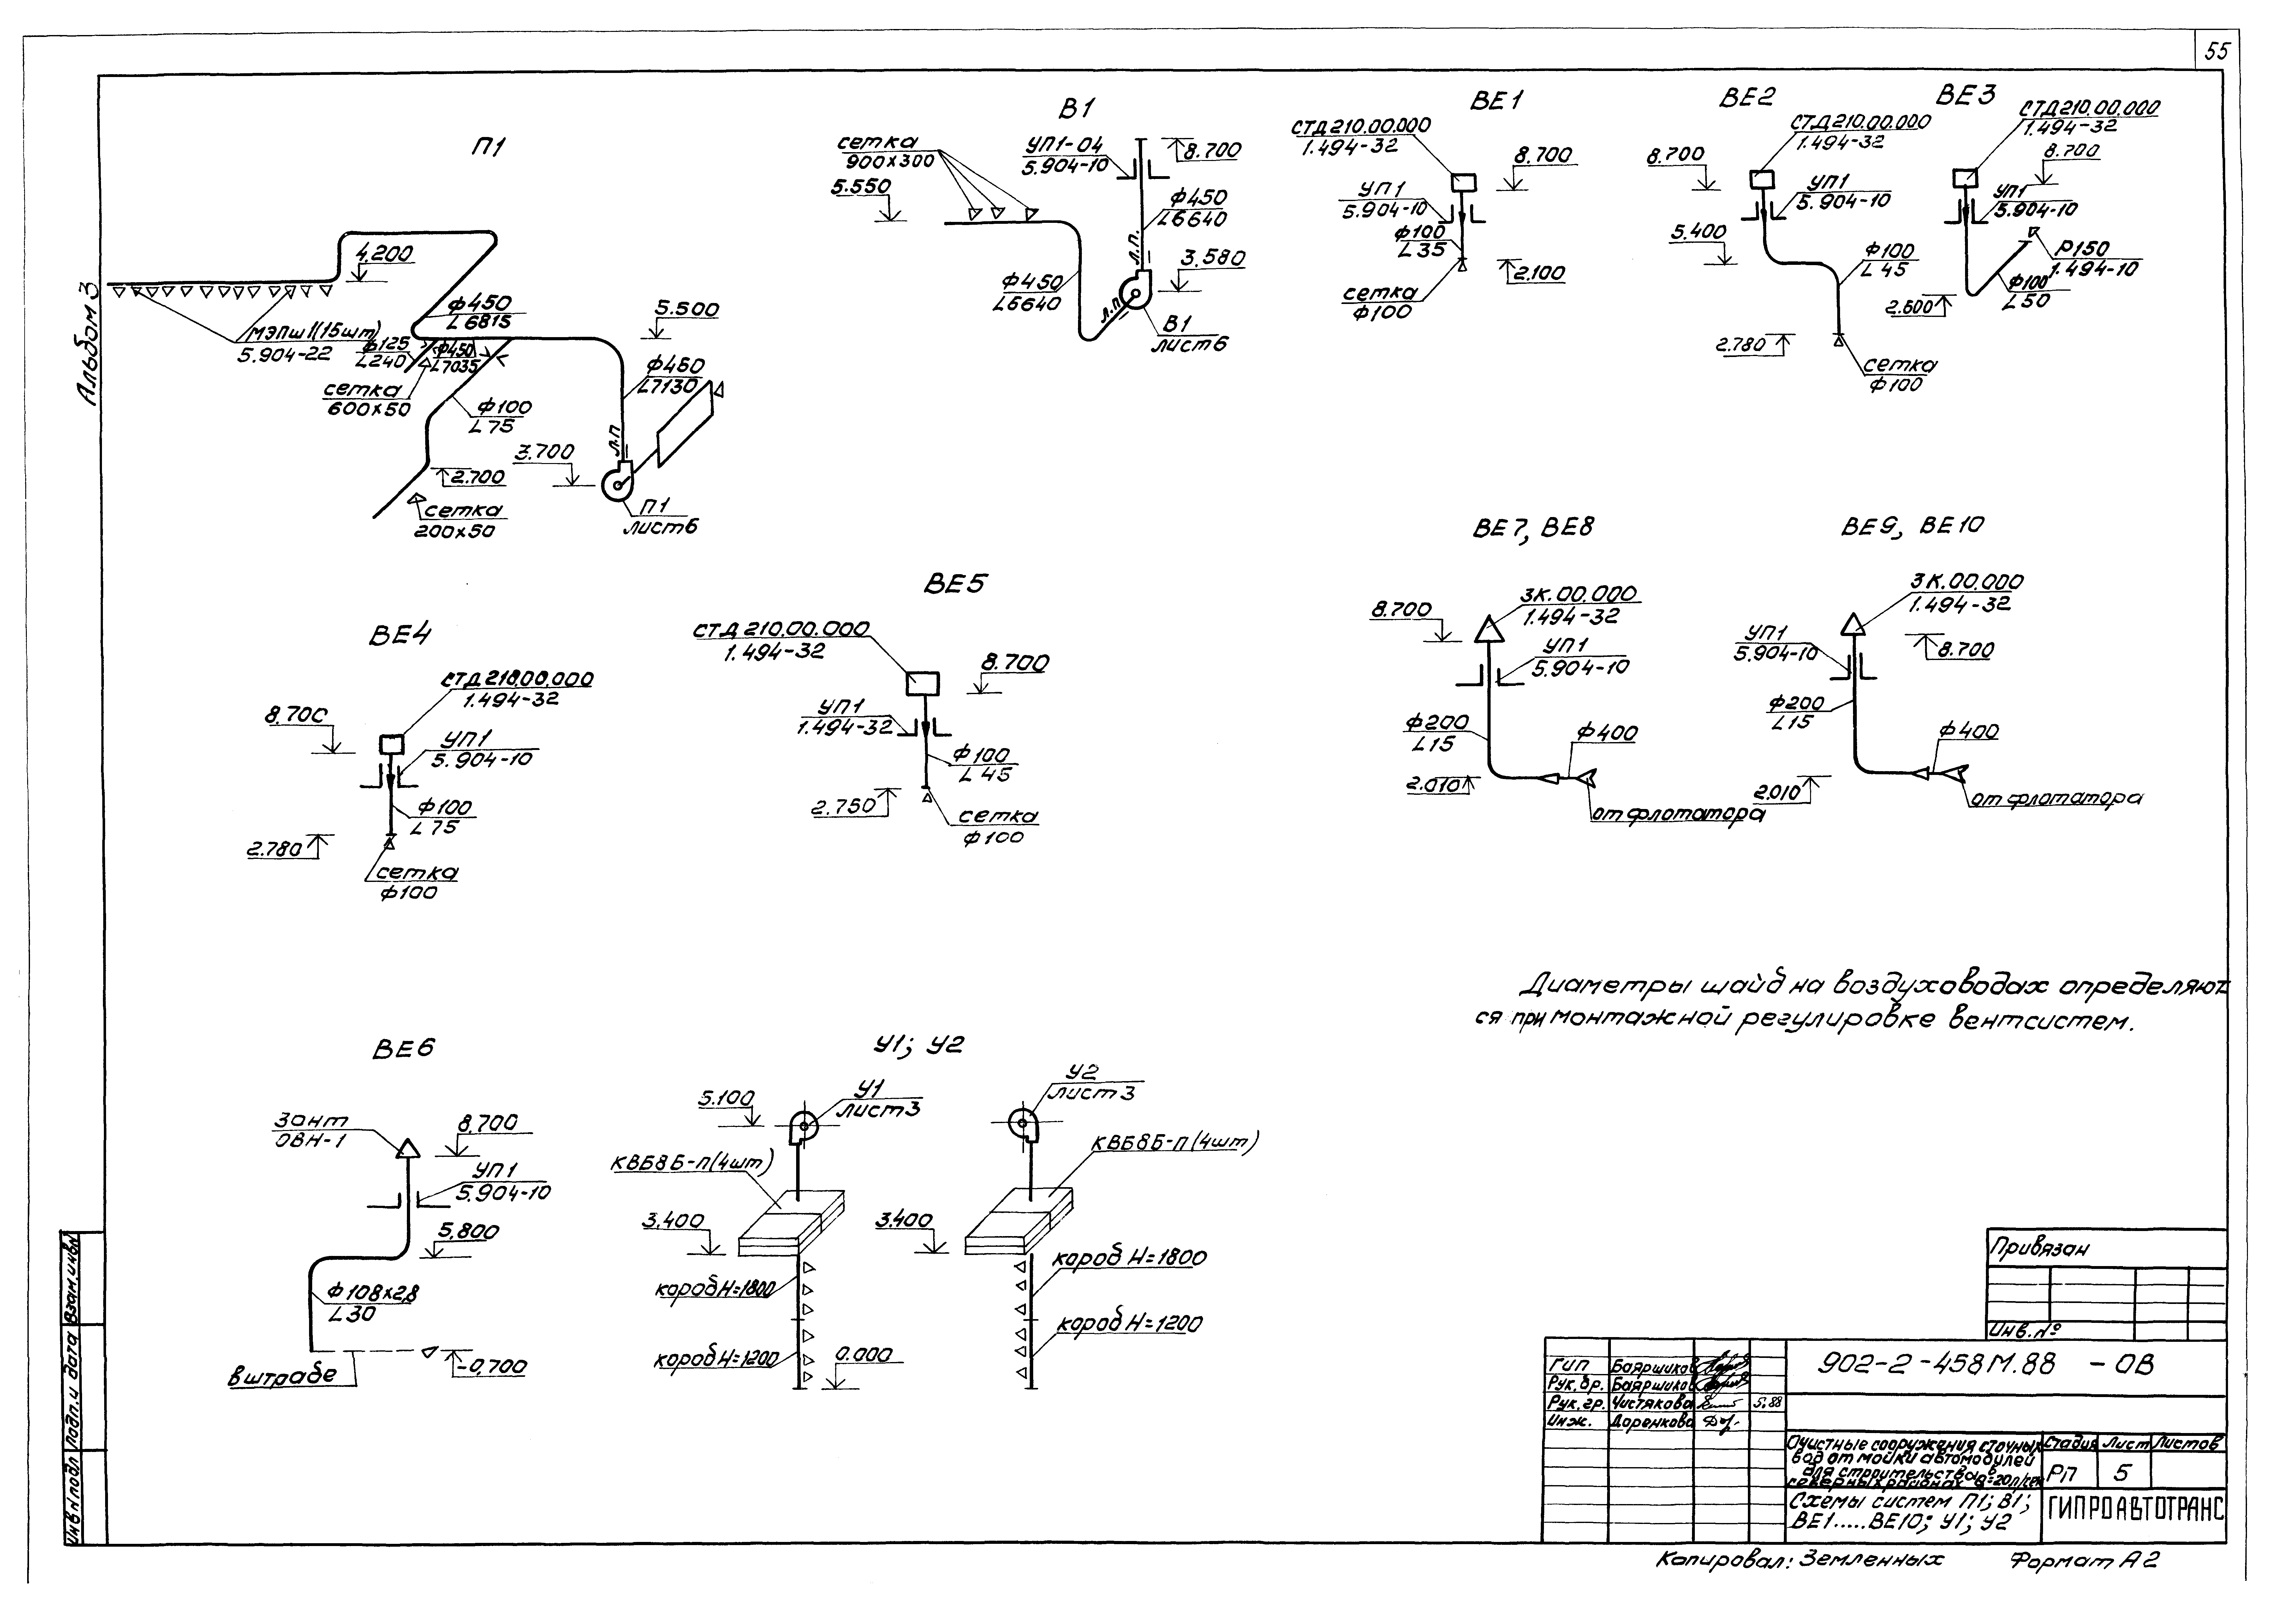 55
Альбом 3
П1
4.200
МЭПш1(15шт)
5.904-22
ф450
L6815
ф125
L240
ф450
L7035
сетка
600х50
ф100
L75
2.700
сетка
200х50
5.500
L7130
л.п
3.700
П1
лист6
В1
сетка
900х300
5.550
УП1-04
5.904-10
8.700
ф450
L6640
л.п.
3.580
ф450
L6640
л.п
В1
лист6
ВЕ1
СТД210.00.000
1.494-32
8.700
УП1
5.904-10
ф100
L35
2.100
сетка
ф100
ВЕ2
СТД210.00.000
1.494-32
8.700
УП1
5.904-10
5.400
ф100
L45
2.780
сетка
ф100
ВЕ3
СТД210.00.000
1.494-32
8.700
УП1
5.904-10
Р150
1.494-10
ф100
L50
2.600
ВЕ4
СТД210.00.000
1.494-32
8.700
УП1
5.904-10
ф100
L75
2.780
сетка
ф100
ВЕ5
СТД210.00.000
1.494-32
8.700
УП1
1.494-32
ф100
L45
2.750
сетка
ф100
ВЕ7, ВЕ8
8.700
ЗК.00.000
1.494-32
УП1
5.904-10
ф200
L15
ф400
2.010
от флотатора
ВЕ9, ВЕ10
ЗК.00.000
1.494-32
УП1
5.904-10
8.700
ф200
L15
ф400
2.010
от флотатора
Диаметры шайб на воздуховодах определяют-
ся при монтажной регулировке вентсистем.
ВЕ6
Зонт
ОВН-1
8.700
УП1
5.904-10
5.800
ф108х2,8
L30
-0,700
в штрабе
У1; У2
5.100
У1
лист3
КВБ8Б-П(4шт)
3.400
короб Н=1800
короб Н=1200
0.000
У2
лист3
КВБ8Б-П(4шт)
3.400
короб Н=1800
короб Н=1200
Привязан
Инв.№
Гип Бояршиков
Рук.бр. Бояршиков
Рук.гр. Чистякова 5.88
Инж. Доренкова
902-2-458М.88 -ОВ
Очистные сооружения сточных
вод от мойки автомодулей
для строительства в
северных районах Q=20л/сек
Стадия Лист Листов
РП 5
Схемы систем П1; В1;
ВЕ1.....ВЕ10; У1; У2
ГИПРОАВТОТРАНС
Взам.инв.N
Подп.и дата
Инв.N подл
Копировал: Земленных Формат А2